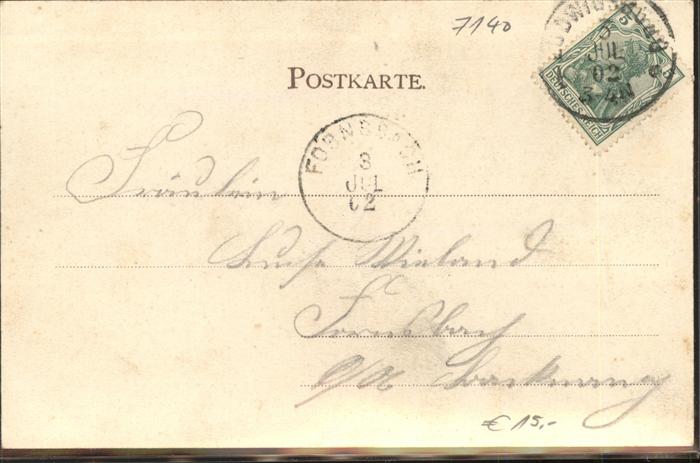 7140
5
LUDWIGSBURG
JUL
02
3-4N
DEUTSCHES REICH
POSTKARTE.
FORNSBACH
3
JUL
02
Fräulein
Luise Wieland
Fornsbach
O/A Backnang
€ 15,-